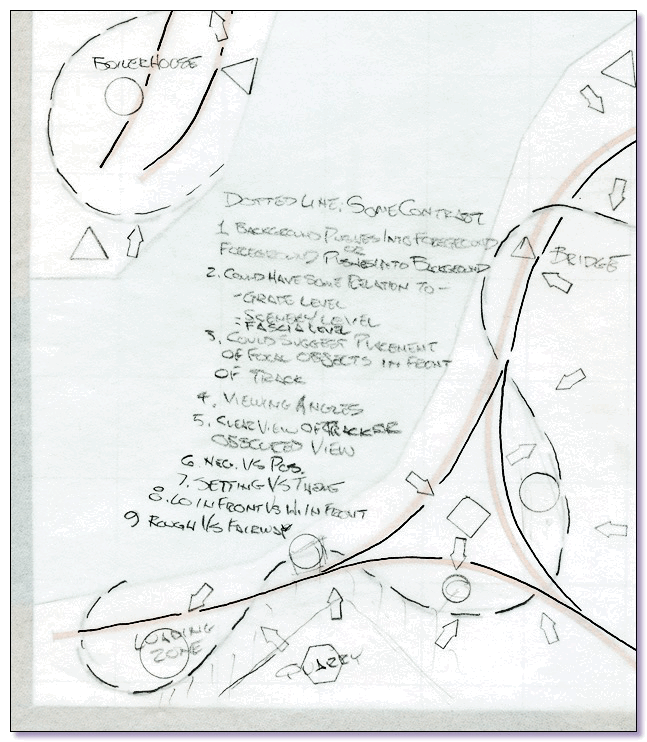 BOILERHOUSE
DOTTED LINE: SOME CONTRAST
1. BACKGROUND PUSHES INTO FOREGROUND
OR
FOREGROUND PUSHES INTO BACKGROUND
BRIDGE
2. COULD HAVE SOME RELATION TO -
- GRADE LEVEL
- SCENERY LEVEL
- FASCIA LEVEL
3. COULD SUGGEST PLACEMENT
OF FOCAL OBJECTS IN FRONT
OF TRACK
4. VIEWING ANGLES
5. CLEAR VIEW OF TRACK OR
OBSCURED VIEW
6. NEG. VS POS.
7. SETTING VS THEME
8. LO IN FRONT VS HI IN FRONT
9 ROUGH VS FAIRWAY
LOADING
ZONE
QUARRY